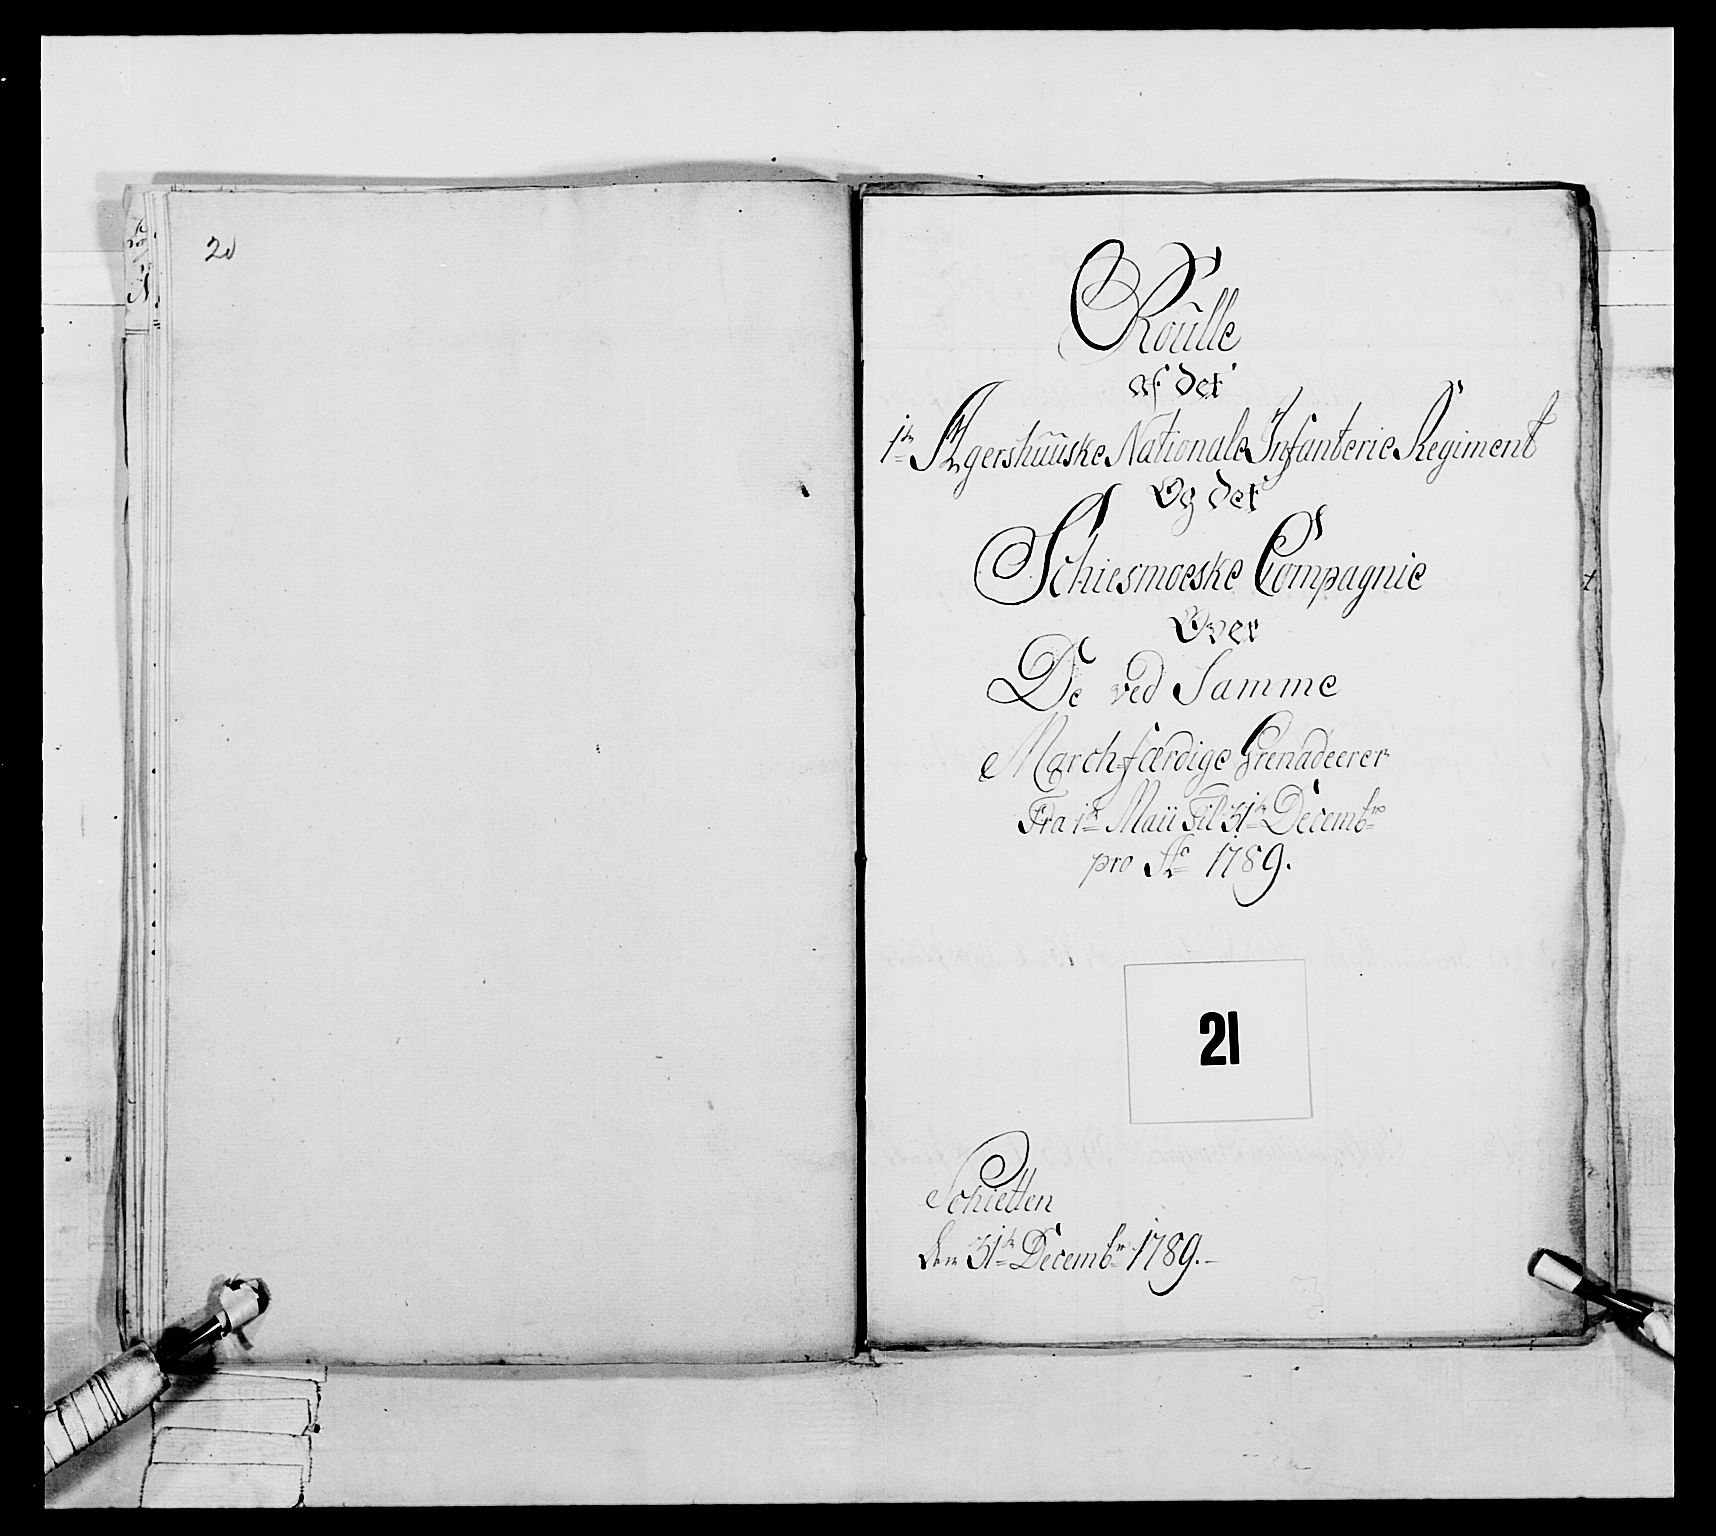 20
Roulle
af det
1te Agershuuske Nationale Infanterie Regiment
Og det
Schiesmoeske Compagnie
Over
De ved Samme
Marchfærdige Grenadeerer
Fra 1te Maii Til 31te Decembr
pro Ao 1789.
21
Schietten
den 31te Decembr 1789.-